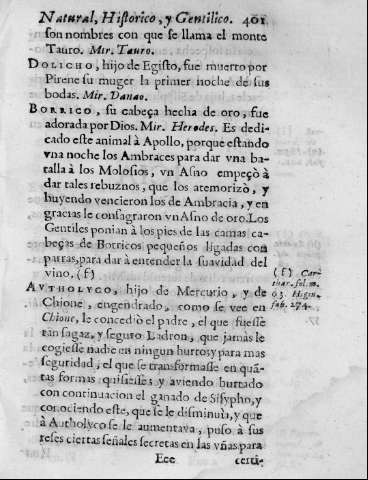 Natural, Historico, y Gentilico. 401
son nombres con que se llama el monte
Tauro. Mir. Tauro.
DOLICHO, hijo de Egisto, fue muerto por
Pirene su muger la primer noche de sus
bodas. Mir. Danao.
BORRICO, su cabeça hecha de oro, fue
adorada por Dios. Mir. Herodes. Es dedi-
cado este animal à Apollo, porque estando
vna noche los Ambraces para dar vna ba-
talla à los Molosios, vn Asno empeçò à
dar tales rebuznos, que los atemorizò, y
huyendo vencieron los de Ambracia, y en
gracias le consagraron vn Asno de oro. Los
Gentiles ponian à los pies de las camas ca-
beças de Borricos pequeños ligadas con
parras, para dar à entender la suavidad del
vino. (f)
(f) Car-
thar. fol. m.
63. Higin.
fab. 274.
AVTHOLYCO, hijo de Mercurio, y de
Chione, engendrado, como se vee en
Chione, le concediò el padre, el que fuesse
tan sagaz, y seguro Ladron, que jamàs le
cogiesse nadie en ningun hurto; y para mas
seguridad, el que se transformasse en quã-
tas formas quisiesse; y aviendo hurtado
con continuacion el ganado de Sisypho, y
conociendo este, que se le disminuìa, y que
à Autholyco se le aumentava, puso à sus
reses ciertas señales secretas en las vñas para
Eee certi-